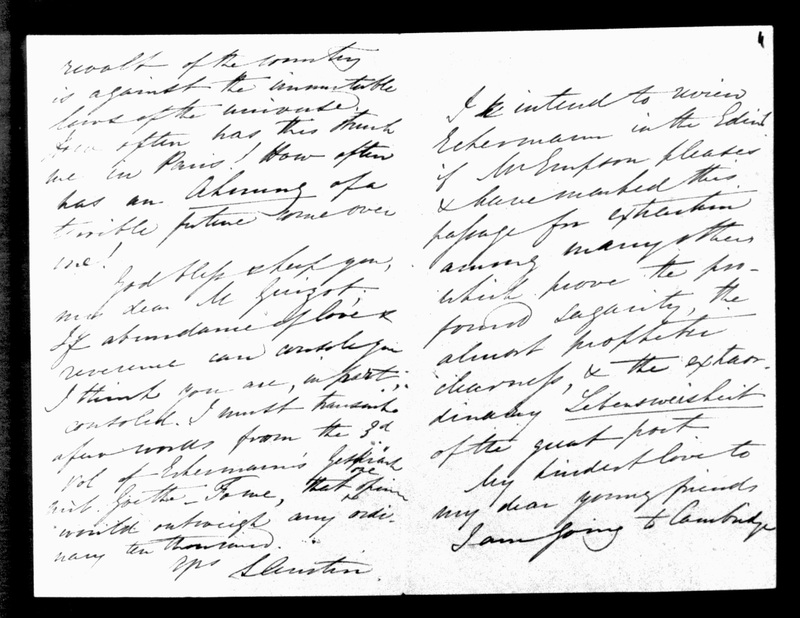 revolt of the country
is against the immutable
laws of the universe.
How often has this struck
me in Paris! How often
has an Ahnung of a
terrible future come over
me!
God bless & keep you,
my dear M Guizot.
If abundance of love &
reverence can console you
I think you are, in part,
consoled. I must transcribe
a few words from the 3d
vol of Eckermann's Gespräche
mit Goethe – To me, that one opinion
would outweigh any ordi-
nary ten thousand.
Yrs S Austin.
I intend to review
Eckermann in the Edinb
if Mr Empson pleases
& have marked this
passage for extraction
among many others
which prove the pro-
found sagacity, the
almost prophetic
clearness, & the extraor-
dinary Lebensweisheit
of the great poet
My kindest love to
my dear young friends
I am going to Cambridge